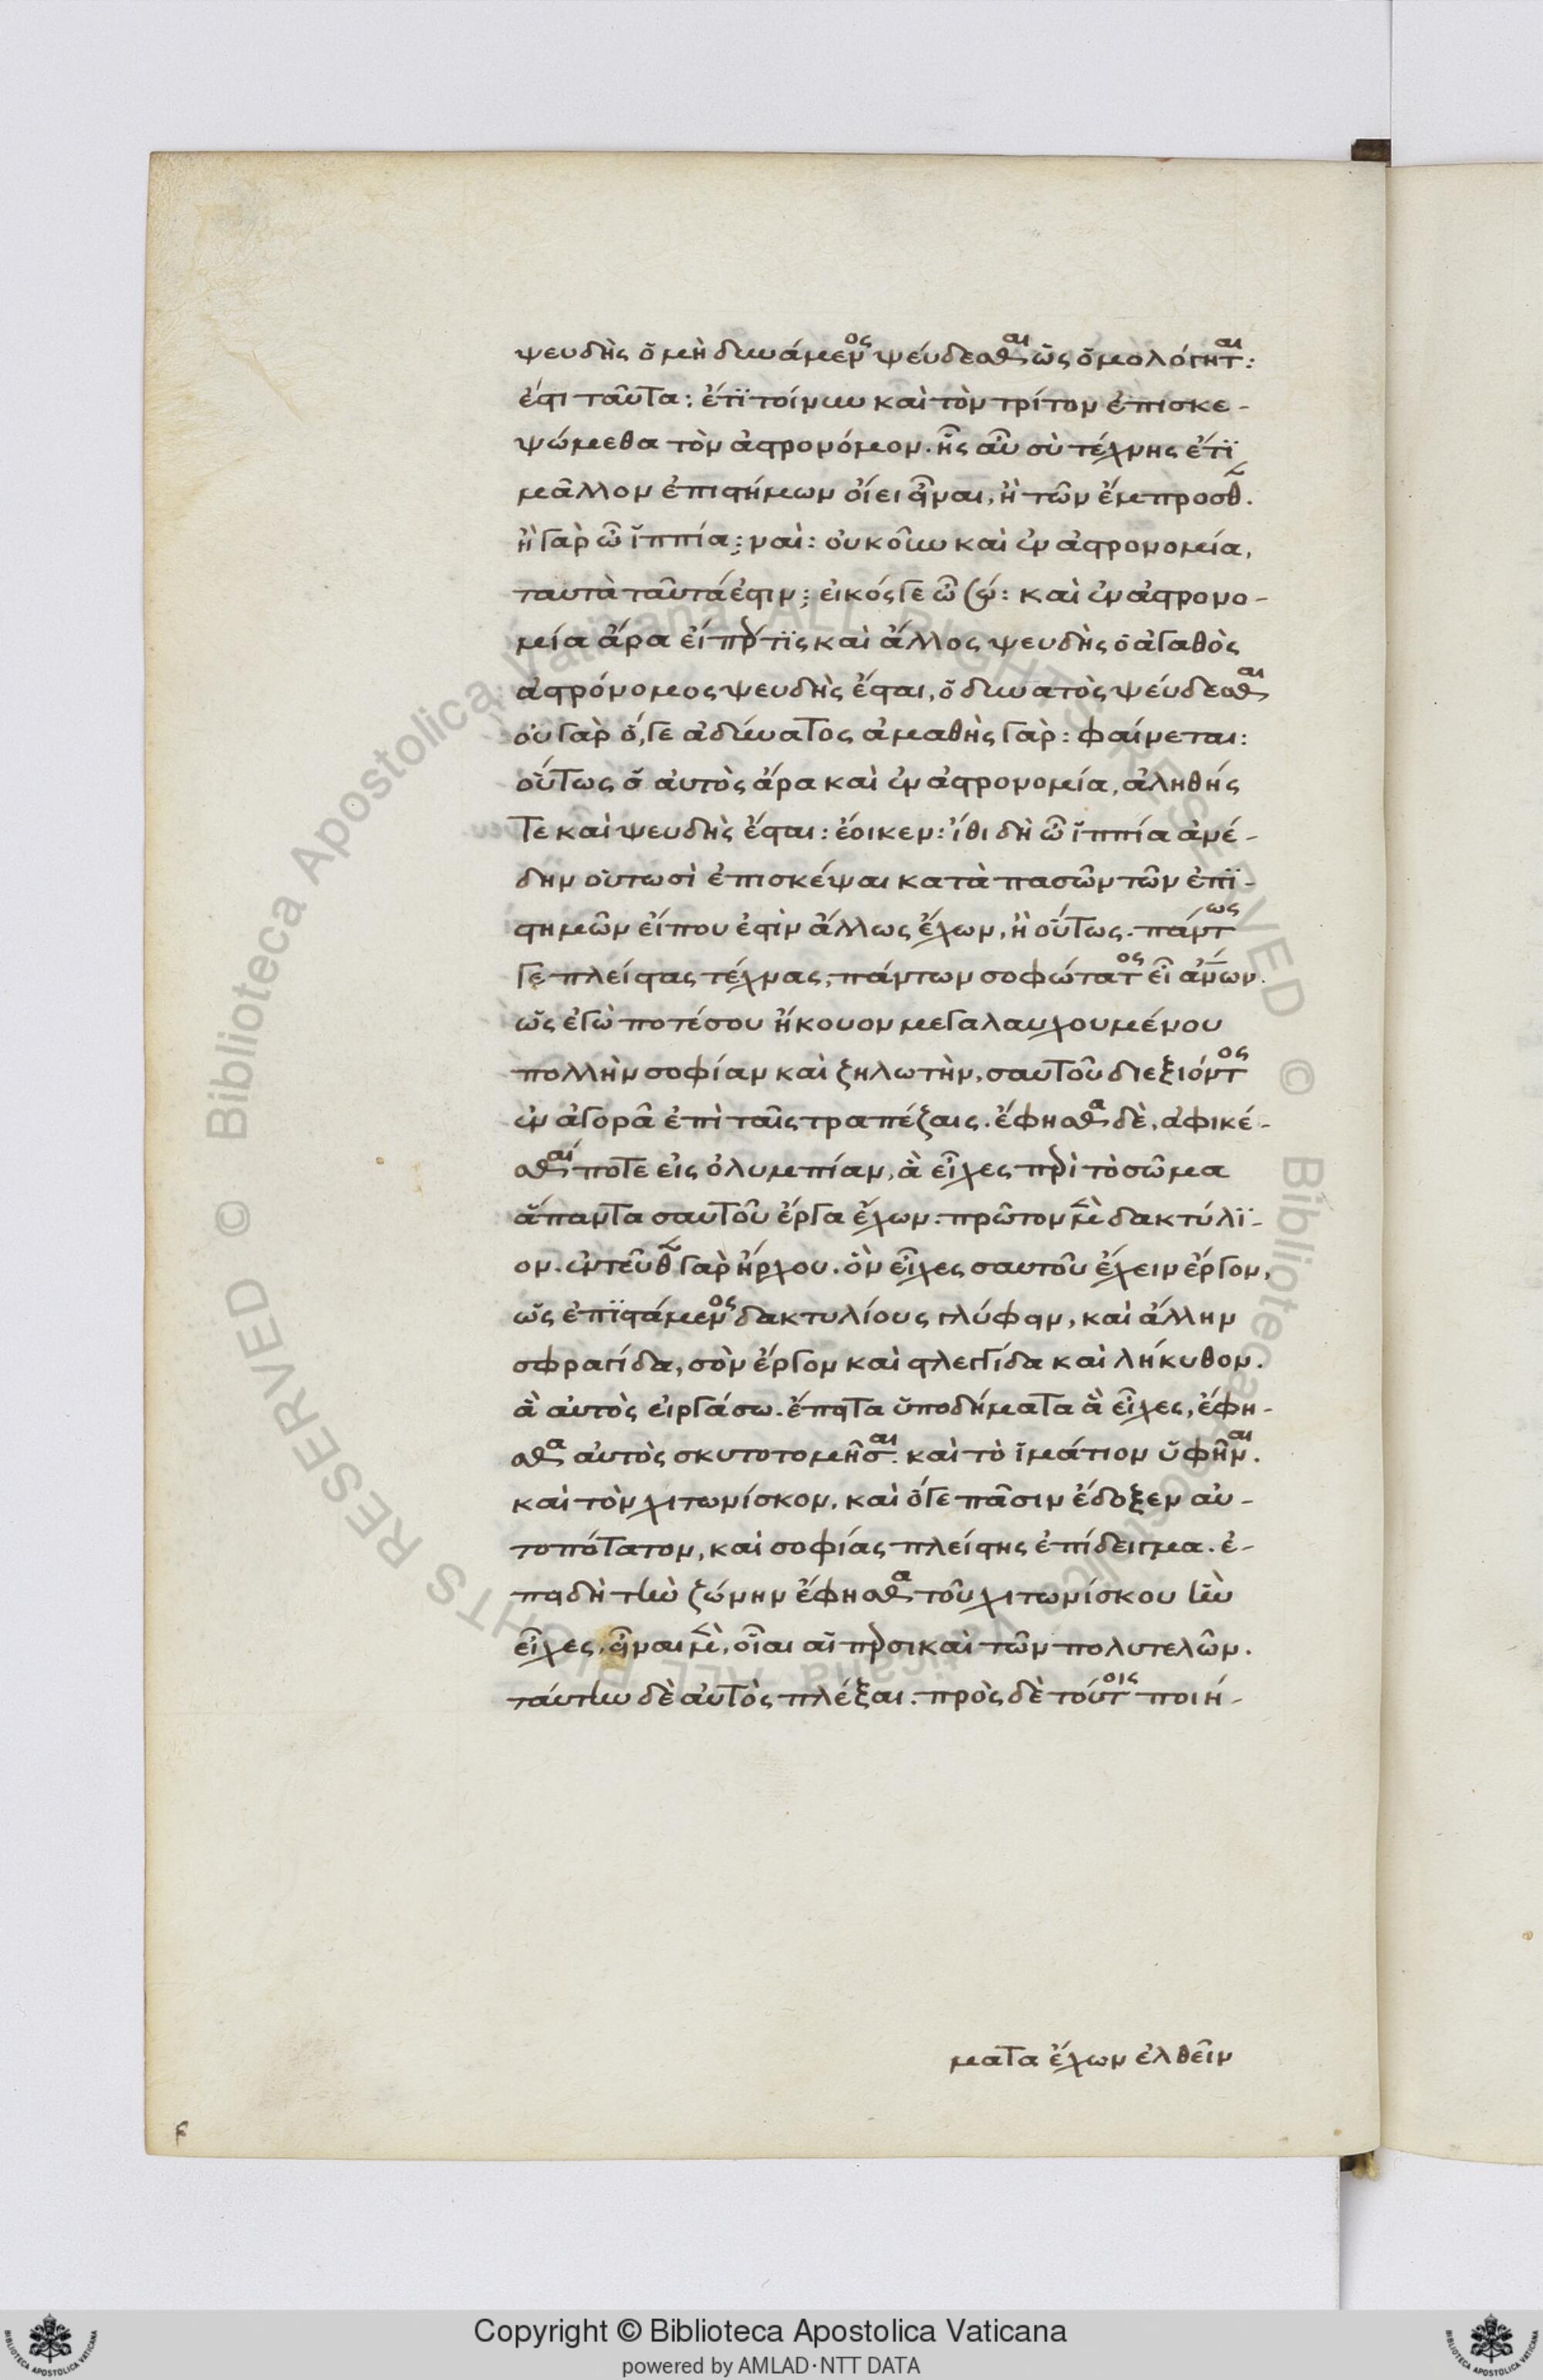 ψευδὴς ὁ μὴ δυνάμενος ψεύδεσθαι ὡς ὁμολόγηται:
ἔστι ταῦτα: ἔτι τοίνυν καὶ τὸν τρίτον ἐπισκε-
ψώμεθα τὸν ἀστρονόμον. ἧς αὖ σὺ τέχνης ἔτι
μᾶλλον ἐπιστήμων οἴει εἶναι, ἢ τῶν ἔμπροσθεν.
ἢ γὰρ ὦ ἱππία; ναὶ: οὐκοῦν καὶ ἐν ἀστρονομία,
ταυτὰ ταῦτά ἐστιν; εἰκός γε ὦ σώ: καὶ ἐν ἀστρονο-
μία ἄρα εἴπέρ τις καὶ ἄλλος ψευδὴς ὁ ἀγαθὸς
ἀστρόνομος ψευδὴς ἔσται, ὁ δυνατὸς ψεύδεσθαι
οὐ γὰρ ὅ, γε ἀδύνατος ἀμαθὴς γὰρ: φαίνεται:
οὕτως ὁ αὐτὸς ἄρα καὶ ἐν ἀστρονομία, ἀληθής
τε καὶ ψευδὴς ἔσται: ἔοικεν: ἴθι δὴ ὦ ἱππία ἀνέ-
δην οὑτωσὶ ἐπισκέψαι κατὰ πασῶν τῶν ἐπι-
στημῶν εἴπου ἐστὶν ἄλλως ἔχων, ἢ οὕτως. πάντως
γε πλείστας τέχνας, πάντων σοφώτατος εἶ ἀνων.
ὡς ἐγὼ ποτέ σου ἤκουον μεγαλαυχουμένου
πολλὴν σοφίαν καὶ ζηλωτὴν, σαυτοῦ διεξιόντος
ἐν ἀγορᾶ ἐπὶ ταῖς τραπέζαις. ἔφησθα δὲ, ἀφικέ-
σθαί ποτε εἰς ὀλυμπίαν, ἃ εἶχες περὶ τὸ σῶμα
ἅπαντα σαυτοῦ ἔργα ἔχων: πρῶτον μὲν δακτύλι-
ον. ἐντεῦθεν γὰρ ἤρχου. ὃν εἶχες σαυτοῦ ἔχειν ἔργον,
ὡς ἐπιστάμενος δακτυλίους γλύφειν, καὶ ἄλλην
σφραγίδα, σὸν ἔργον καὶ στλεγγίδα καὶ λήκυθον.
ἃ αὐτὸς εἰργάσω. ἔπειτα ὑποδήματα ἃ εἶχες, ἔφη-
σθα αὐτὸς σκυτοτομῆσαι. καὶ τὸ ἱμάτιον ὑφῆναι.
καὶ τὸν χιτωνίσκον, καὶ ὅγε πᾶσιν ἔδοξεν αὐ-
τοπότατον, καὶ σοφίας πλείστης ἐπίδειγμα. ἐ-
πειδὴ τὴν ζώνην ἔφησθα τοῦ χιτωνίσκου ἣν
εἶχες, εἶναι μὲν, οἷαι αἱ περσικαὶ τῶν πολυτελῶν.
ταύτην δὲ αὐτὸς πλέξαι. πρὸς δὲ τούτοις ποιή-
ματα ἔχων ἐλθεῖν
Copyright © Biblioteca Apostolica Vaticana
powered by AMLAD·NTT DATA
© Biblioteca Apostolica Vaticana ALL RIGHTS RESERVED © Biblioteca Apostolica Vaticana ALL RIGHTS RESERVED